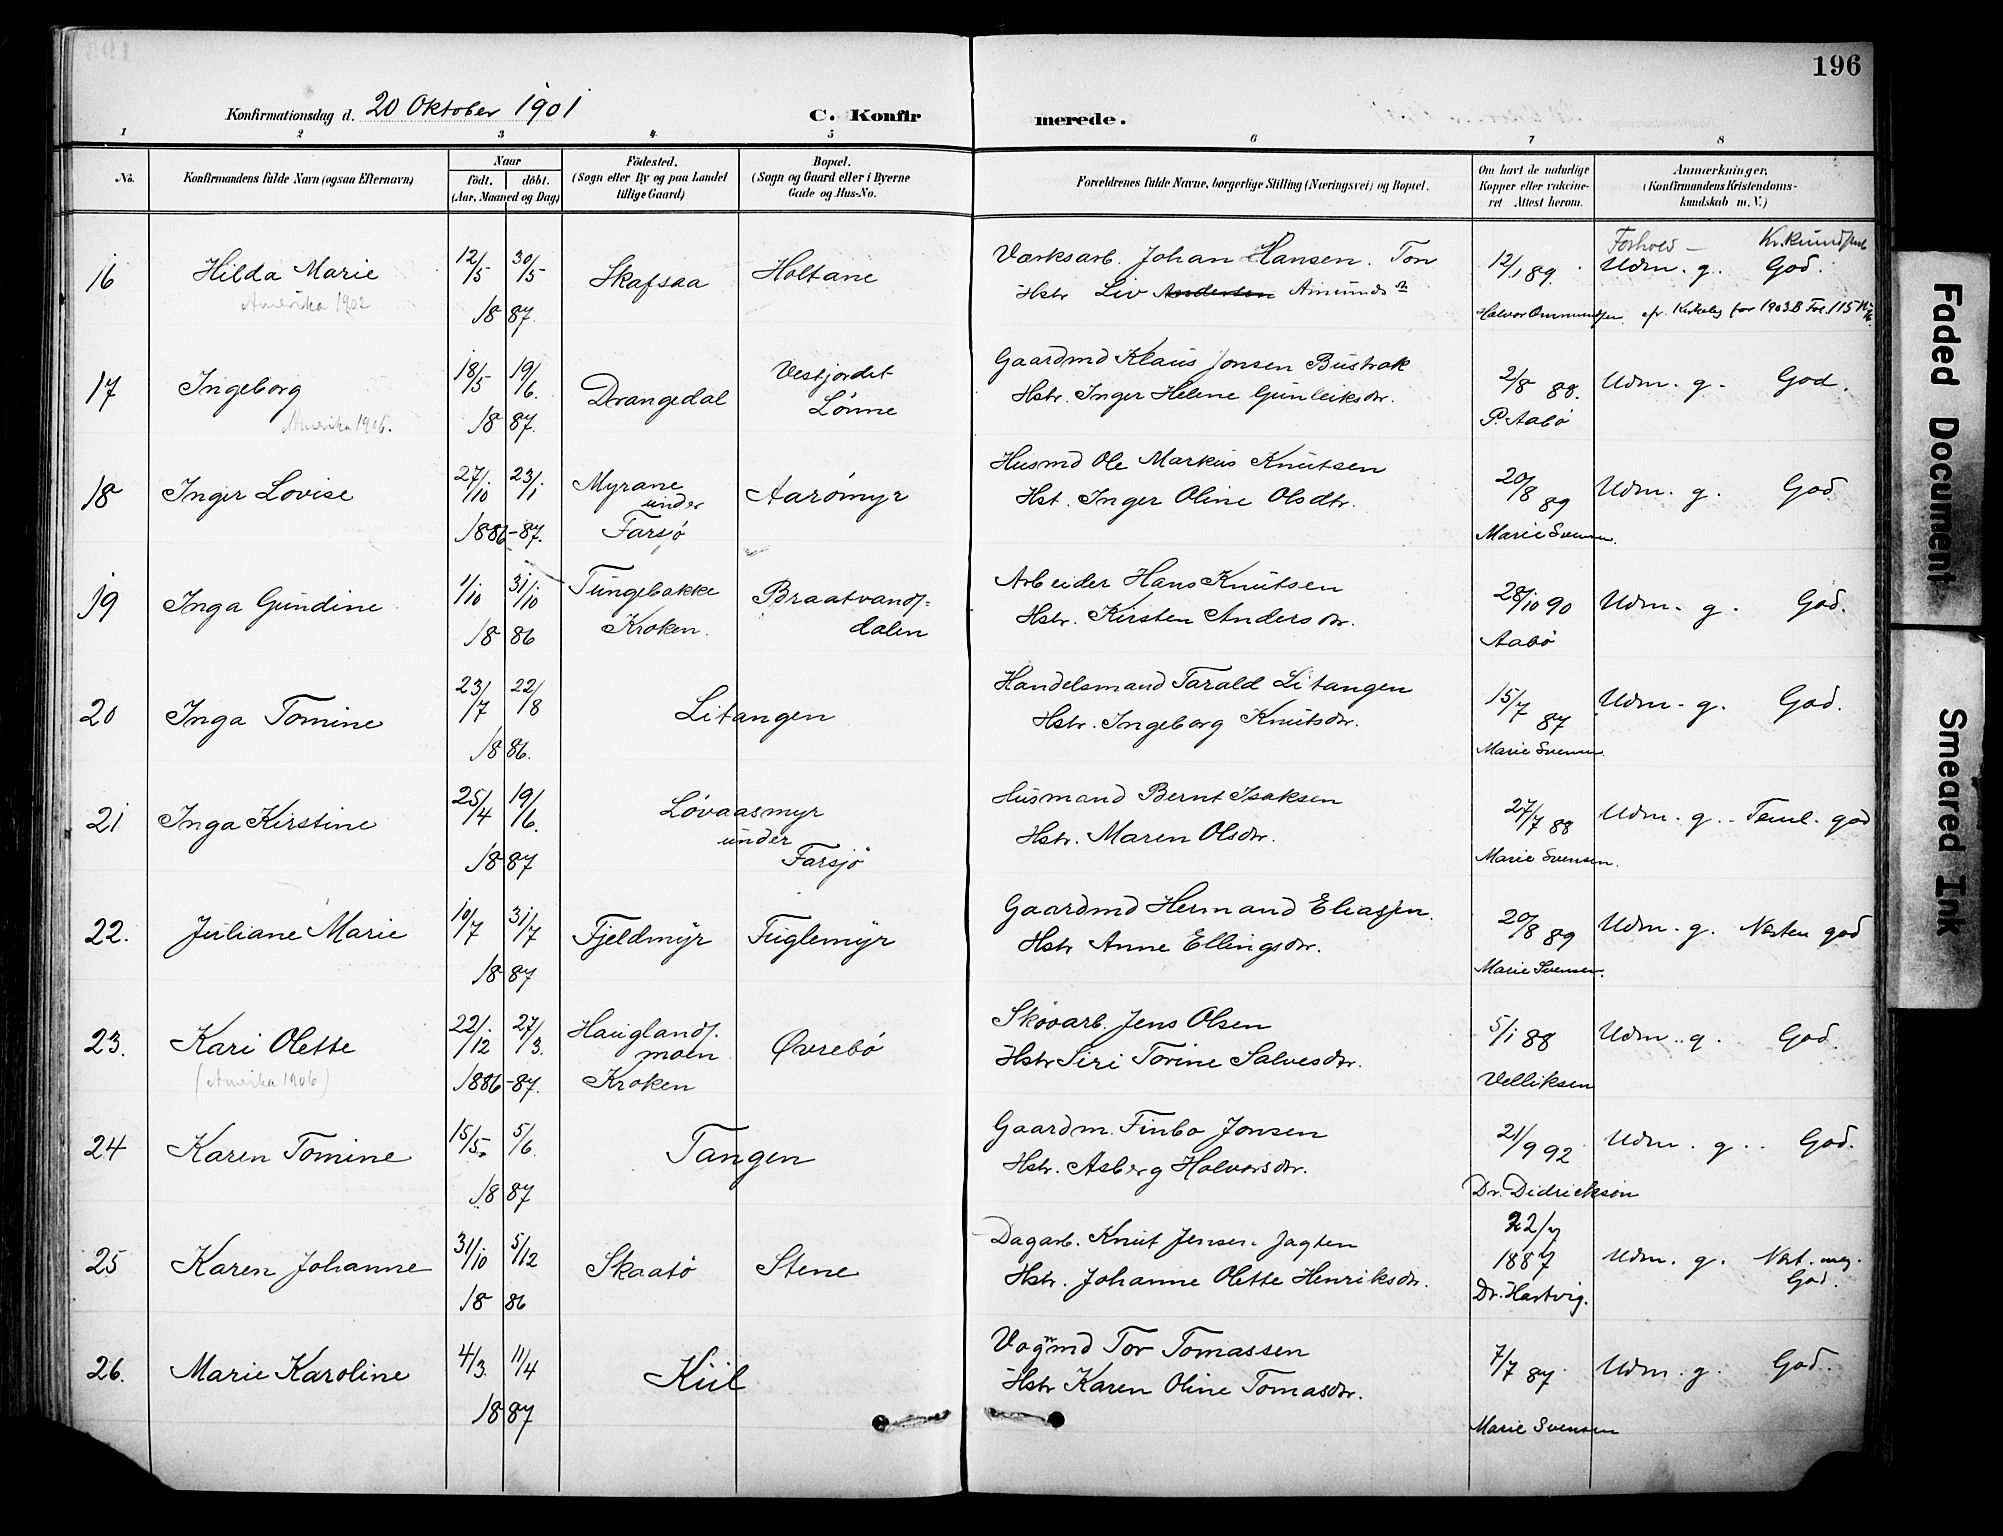 196
Konfirmationsdag d. 20 Oktober 1901 C. Konfirmerede.
1 2 3 4 5 6 7 8
No. Konfirmandens fulde Navn (ogsaa Efternavn) Naar Födested. Bopæl. Forældrenes fulde Navne, borgerlige Stilling (Næringsvei) og Bopæl. Om havt de naturlige Anmærkninger.
födt. döbt. (Sogn eller By og paa Landet (Sogn og Gaard eller i Byerne Kopper eller vakcine- (Konfirmandens Kristendoms-
(Aar, Maaned og Dag) tillige Gaard) Gade og Hus-No. ret Attest herom. kundskab m. V.)
16 Hilda Marie 12/5 30/5 Skafsaa Holtane Værksarb. Johan Hansen. 12/1 89. Forhold Udm. g. God.
Amerika 1902 18 87. Hstr Liv Andersen Amunds Halvor Ommundsen. for 1903
17 Ingeborg 18/5 19/6. Drangedal Vestjordet Gaardmd Klaus Jonsen Bustrak 2/8 88. Udm. g. God.
Amerika 1906. 18 87. Lønne Hstr. Inger Helene Gunleiksdr. P. Aabö
18 Inger Lovise 27/10 23/1 Myrane Aarömyr Husmd Ole Markus Knutsen 20/8 89 Udm. g. God
1886-87. under Farsjö Hst. Inger Oline Olsdtr. Marie Svensen.
19 Inga Gundine 1/10 31/10 Tungebakke Braatvands- Arbeider Hans Knutsen 28/10 90 Udm. g. God.
18 86 Kroken. dalen Hstr. Kirsten Andersdr. Aabö
20 Inga Tomine 23/7 22/8 Litangen Handelsmand Tarald Litangen 15/7 87 Udm. g. God.
18 86. Hstr. Ingeborg Knutsdr. Marie Svensen
21 Inga Kirstine 25/4 19/6. Løvaasmyr Husmand Bernt Isaksen 27/7 88 Udm. g. Teml. god
18 87 under Farsjö Hstr. Maren Olsdr. Marie Svensen.
22. Juliane Marie 10/7 31/7 Fjeldmyr Fuglemyr Gaardmd Hermand Eliassen. 20/8 89 Udm. g. Næsten god
18 87 Hstr Anne Ellingsdr. Marie Svensen.
23. Kari Olette 22/12 27/3. Hauglands- Øvrebö Skovarb. Jens Olsen 5/1 88 Udm. g. God.
(Amerika 1906) 1886-87. moen Kroken Hstr Siri Torine Salvesdr. Velliksen
24 Karen Tomine 15/5. 5/6. Tangen Gaardm. Finbo Jonsen 21/9 92 Udm. g. God.
18 87 Hstr. Asberg Halvorsdr. Dr. Didrickson
25 Karen Johanne 31/10 5/12 Skaatö Stene Dagarb. Knut Jensen Jagten 22/7 1887 Udm. g. Næst. meg. God.
18 86 Hstr. Johanne Olette Henriksdr. Dr. Hartvig.
26. Marie Karoline 4/3. 11/4 Kiil Vognmd Tor Tomassen 7/7 87. Udm. g. God.
18 87 Hstr Karen Oline Tomasdr. Marie Svensen
Faded Document
Smeared Ink